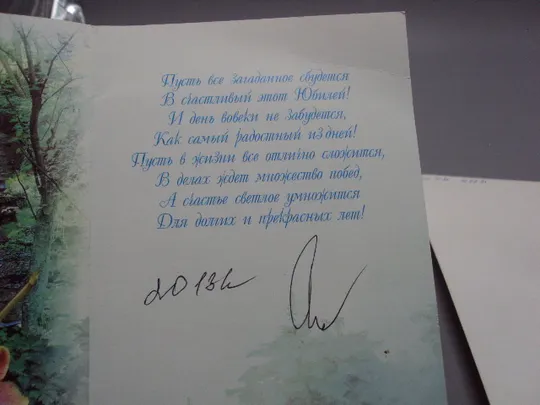 Пусть все загаданное сбудется
В счастливый этот Юбилей!
И день вовеки не забудется,
Как самый радостный из дней!
Пусть в жизни все отлично сложится,
В делах ждет множество побед,
А счастье светлое умножится
Для долгих и прекрасных лет!
2013г